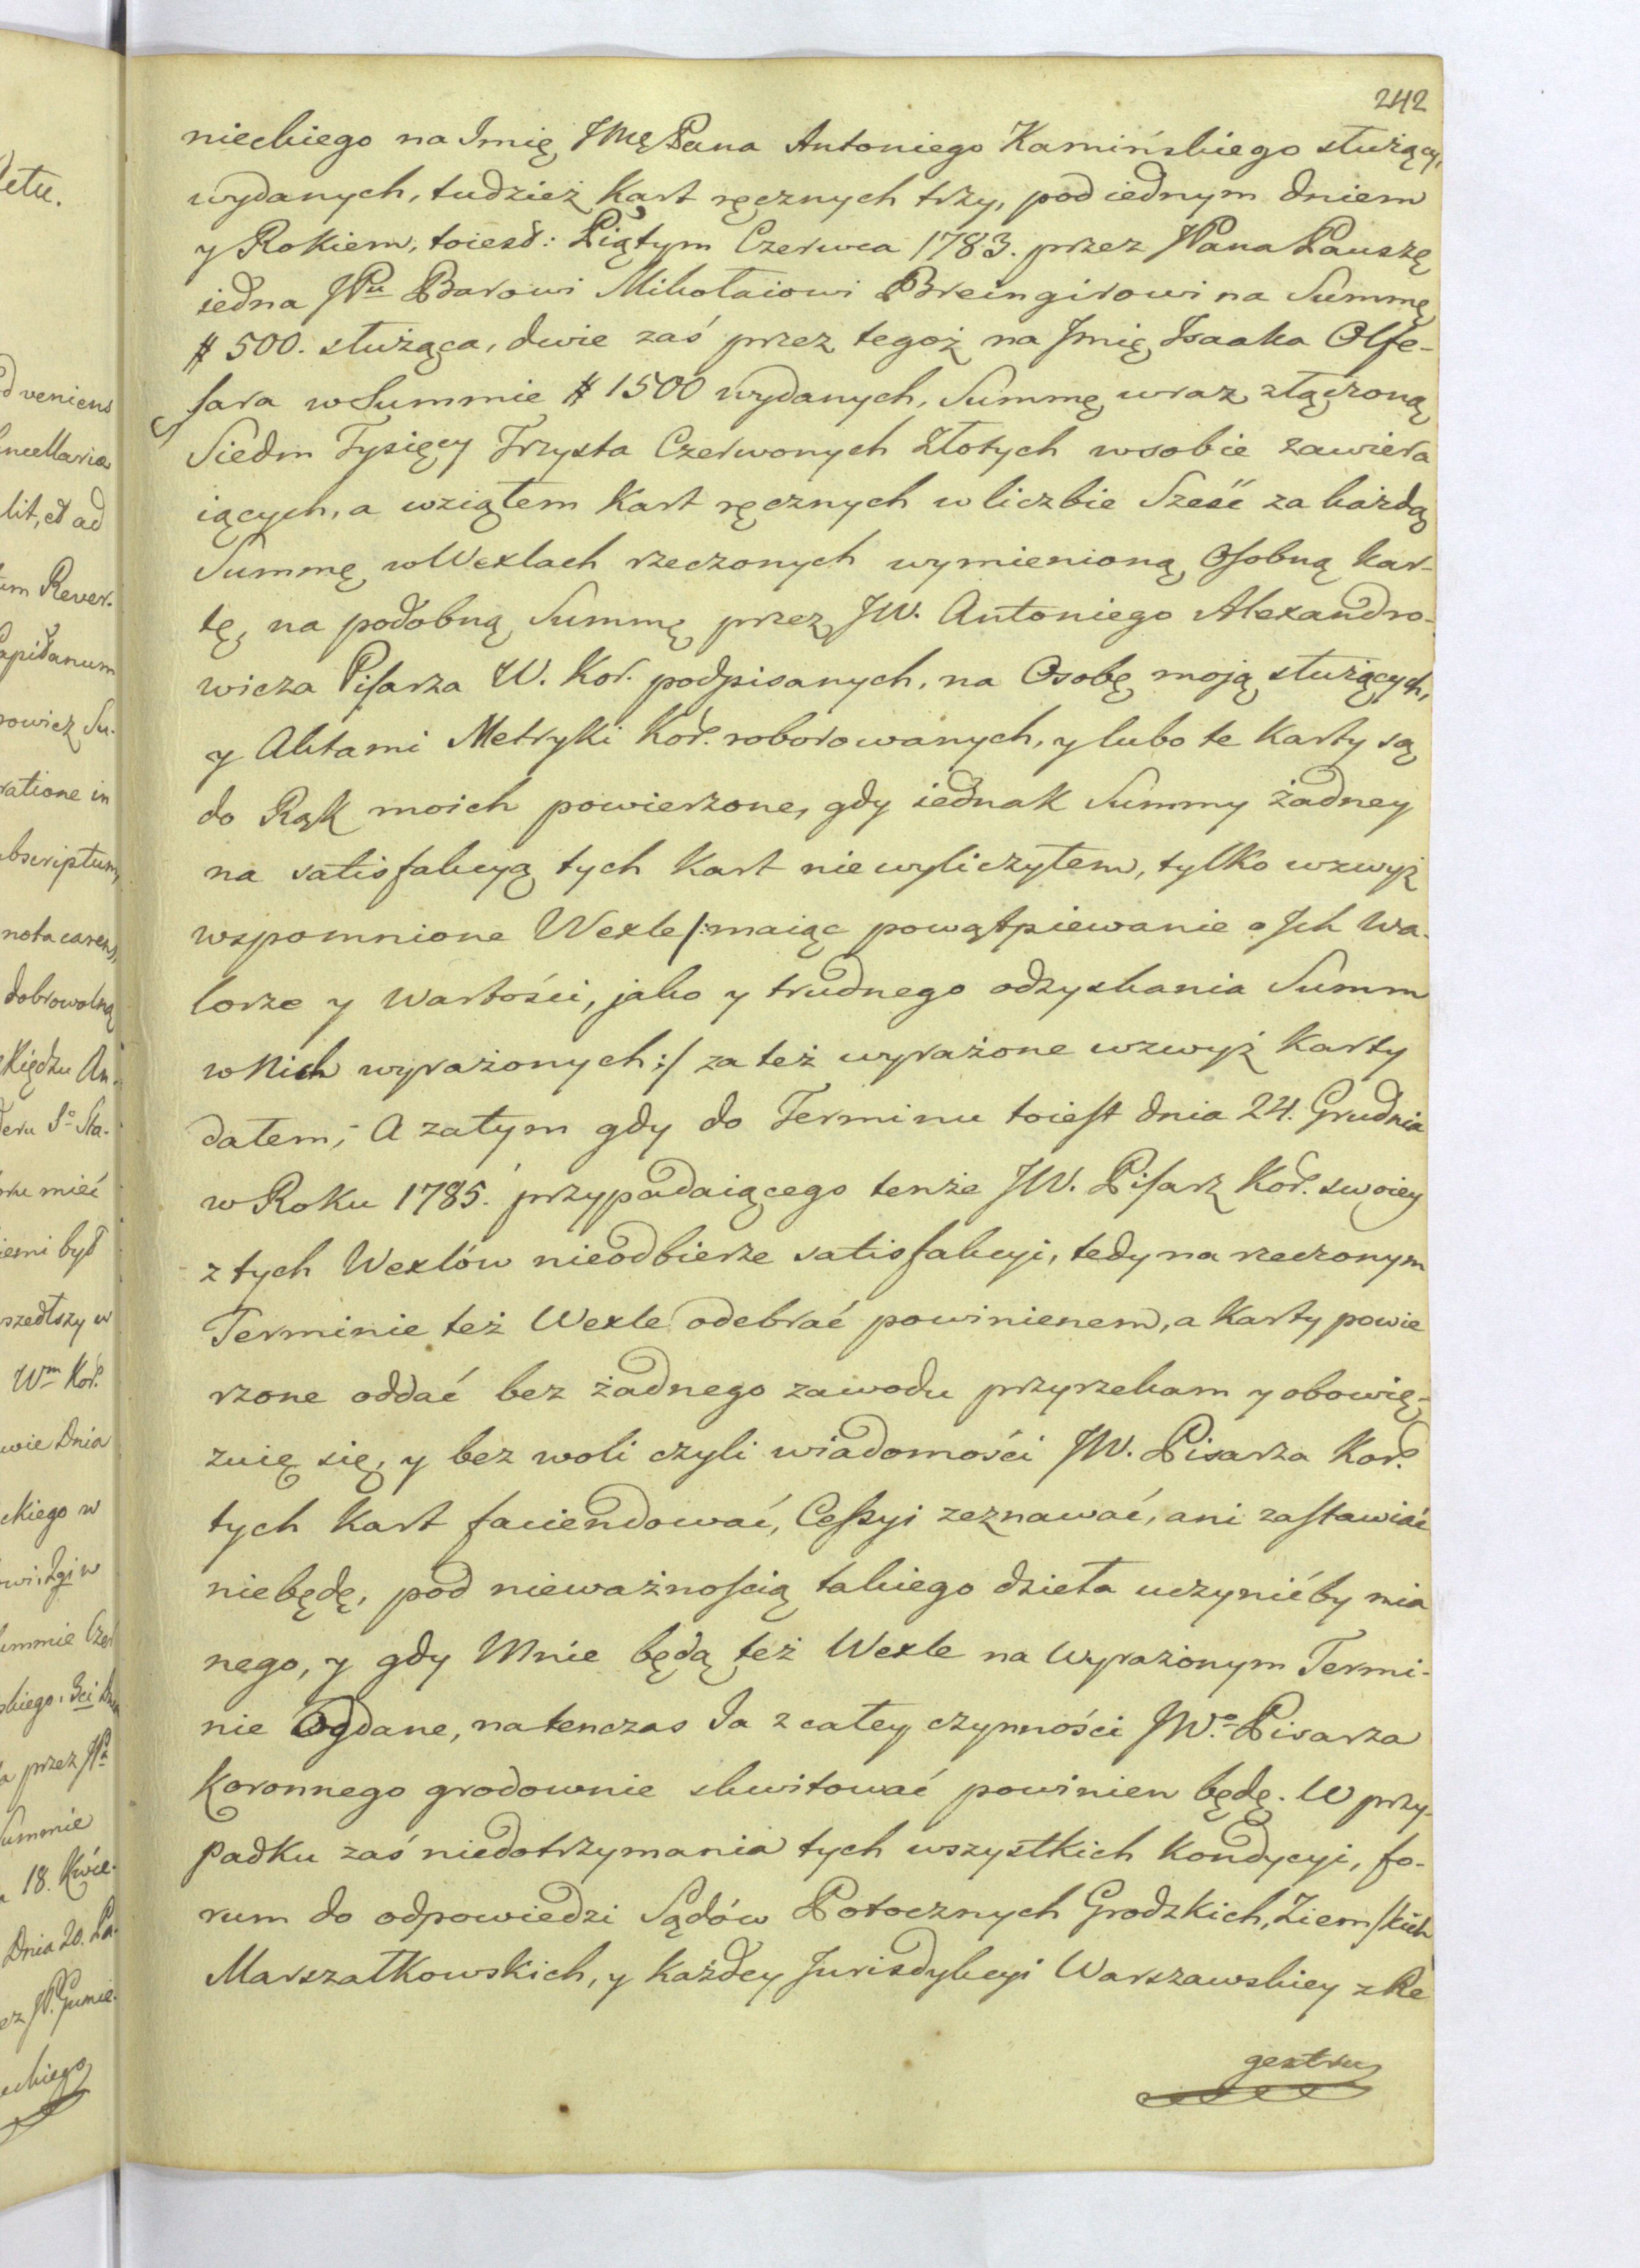 242
nieckiego na Imię JMę Pana Antoniego Kamińskiego służący,
wydanych, tudzież Kart ręcznych trzy, pod iednym dniem
y Rokiem, toiest: Piątym Czerwca 1783. przez JPana Pauszę
iedna JPu Barowi Mikołaiowi Breingirowi na Summę
# 500. służąca, dwie zaś przez tegoż na Imię Isaaka Olfe-
fara w Summie # 1500 wydanych, Summę wraz złączoną
Siedm Tysięcy Trzysta Czerwonych Złotych wsobie zawiera
iących, a wziąłem Kart ręcznych w liczbie Sześć za każdą
Summę w Wexlach rzeczonych wymienioną Osobną kar-
tę, na podobną Summę przez JW. Antoniego Alexandro-
wicza Pisarza W. Kor. podpisanych, na Osobę moją służących,
y Aktami Metryki Kor. roborowanych, y lubo te Karty są
do Rąk moich powierzone, gdy iednak Summy żadney
na satisfakcyą tych Kart niewyliczyłem, tylko wzwyż
wspomnione Wexle /:maiąc powątpiewanie o Ich Wa-
lorze y Wartości, jako y trudnego odzyskania Summ
w Nich wyrażonych:/ za też wyrażone wzwyż Karty
dałem; A zatym gdy do Terminu toiest dnia 24. Grudnia
w Roku 1785. przypadaiącego tenże JW. Pisarz Kor. swoiey
z tych Wexlów nieodbierze satisfakcyi, tedy na rzeczonym
Terminie też Wexle odebrać powinienem, a Karty powie
rzone oddać bez żadnego zawodu przyrzekam y obowię-
zuię się, y bez woli czyli wiadomości JW. Pisarza Kor.
tych Kart faciendować, Cessyi zeznawać, ani zastawiać
niebędę, pod nieważnością takiego dzieła uczynićby mia
nego, y gdy Mnie będą też Wexle na Wyrażonym Termi-
nie Oddane, natenczas Ja z całey czynności JWo. Pisarza
Koronnego grodownie skwitować powinien będę. W przy-
padku zaś niedotrzymania tych wszystkich Kondycyi, fo-
rum do odpowiedzi Sądów Potocznych Grodzkich, Ziemskich
Marszałkowskich, y każdey Jurisdykcyi Warszawskiey z Re
gestru